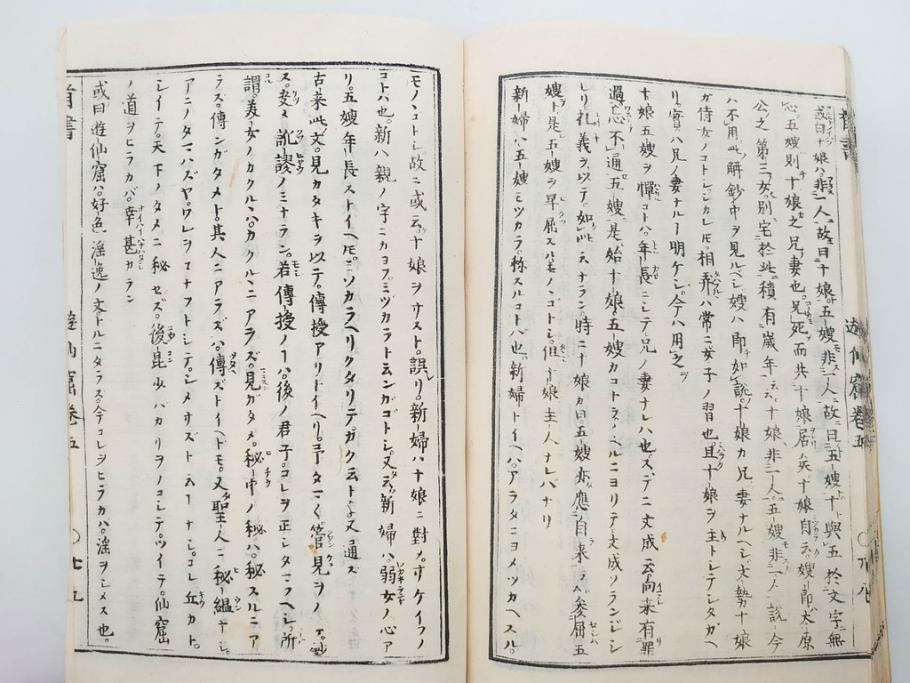 或曰十娘ハ非一人故曰十娘。五嫂非一人故曰五嫂十與五於文字無
心五嫂則十娘之兄ノ妻也兄死而共十娘居矣十娘自云嫂即太原
公之第三女別宅於此積有歳年云云十娘非一人五嫂非一人説今
ハ不用此ノ解鈔中ヲ見ルベシ嫂ハ即如説十娘カ兄ノ妻ナルヘシ大勢十娘
カ侍女ノコトシシカレ𪜈相ハ常ニ女子ノ習也且十娘ヲ主トシテシタガヘ
リ實ハ兄ノ妻ナルヿ明ケシ今ハ用之
十娘五嫂ヲ憚コトハ年長ニシテ兄ノ妻ナレハ也ステニ文成云向来有罪
過忘不通五嫂是始十娘五嫂カコトヲノヘルニヨリテ文成ソランジシ
レリ礼義ヲ以テ如此云ナラン時ニ十娘カ曰五嫂亦應自来ラ屈五
嫂ト是五嫂ヲ早屈スルモノヽコトシ但十娘主人ナレバナリ
新婦ハ五嫂ミツカラノ称スルコトバ也新婦トイヘハアラタニヨメツカヘスル
モノヽコトシ故ニ或云十娘ヲサスト誤リ新婦ハ十娘ニ對メオケイフノ
コトハ也。新ハ親ノ字ニカヨフミヅカラト云ンガゴトシ又云新婦ハ弱女ノ心ア
リ。五嫂年長ストイヘ𪜈ミツカラヘリクタリテカク云トゾ又通ス
古来此文見カタキヲ以テ傳授アリトイヘリ予タマ〱管見ヲノフ抄
ス。受ル訛謬ノミナラン若傳授ノ人ハ後ノ君子コレヲ正シタマフヘシ所
謂美女ノカクルヽハカクルヽニアラズ見ガタメ秘中ノ秘ハ秘スルニア
ラズ傳ンガタメト其人ニアラズハ傳ズトイヘドモ又聖人ニ秘縕ナシ
アニノタマハズヤワレヲ工ナフトシテシメサズト云ヿナシコレ丘カト
レイテ天下ノタメニ秘セズ後昆少バカリヲノコシテツイテ仙窟
ノ道ヲヒラカバ幸甚カラン
或曰遊仙窟ハ好色淫逸ノ文トルニタラズ今コレヲヒラカハ淫ヲシメス也
遊仙窟卷五
遊仙窟卷五
首書